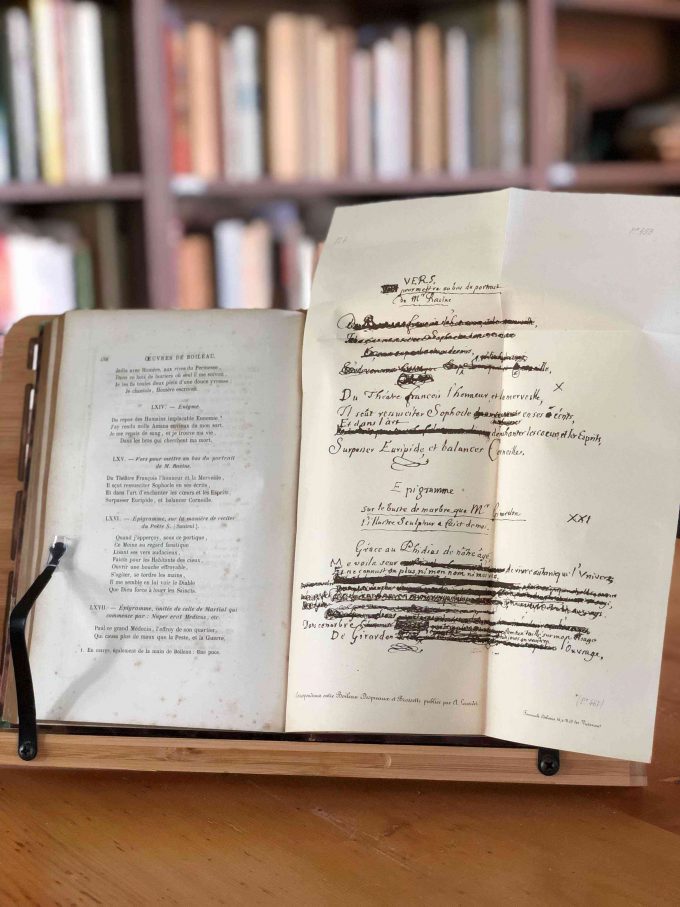 ŒUVRES DE BOILEAU.
Jadis avec Homère, aux rives du Permesse,
Dans ce bois de lauriers où seul il me suivoit,
Je les fis toutes deux plein d'une douce yvresse
Je chantois, Homère escrivoit.
LXIV. — Enigme.
Du repos des Humains implacable Ennemie
J'ay rendu mille Amans envieux de mon sort.
Je me repais de sang, et je trouve ma vie
Dans les bras qui cherchent ma mort.
LXV. — Vers pour mettre au bas du portrait
de M. Racine.
Du Théâtre François l'honneur et la Merveille,
Il sçeut resusciter Sophocle en ses écrits
Et dans l'art d'enchanter les cœurs et les Esprits
Surpasser Euripide, et balancer Corneille.
LXVI. — Epigramme, sur la manière de reciter
du Poëte S. [Santeul].
Quand j'apperçoy, sous ce portique,
Ce Moine au regard fanatique
Lisant ses vers audacieux,
Faicts pour les Habitants des cieux,
Ouvrir une bouche effroyable,
S'agiter, se tordre les mains,
Il me semble en lui voir le Diable
Que Dieu force à louer les Saincts.
LXVII. — Epigramme, imitée de celle de Martial qui
commence par : Nuper erat Medicus, etc.
Paul ce grand Médecin, l'effroy de son quartier,
Qui causa plus de maux que la Peste, et la Guerre,
1. En marge, également de la main de Boileau :
VERS,
pour mettre au bas du portrait
de Mr Racine
Du Théatre françois l'honneur et la merveille,
X
Il sçeut resusciter Sophocle en ses écrits,
Et dans l'art
d'enchanter les cœurs et les Esprits,
Surpasser Euripide, et balancer Corneille.
Epigramme
sur le buste de marbre que Mr Girardon
l'illustre Sculpteur a fait de moi.
XXI
Grace au Phidias de nôtre âge,
Me voilà seur de vivre autant que l'Univers
Et ne connust on plus ni mon nom ni mes vers,
Dans ce marbre
De Girardon
Ouvrage,
Correspondance entre Boileau Despreaux et Brossette publiée par A. Laverdet